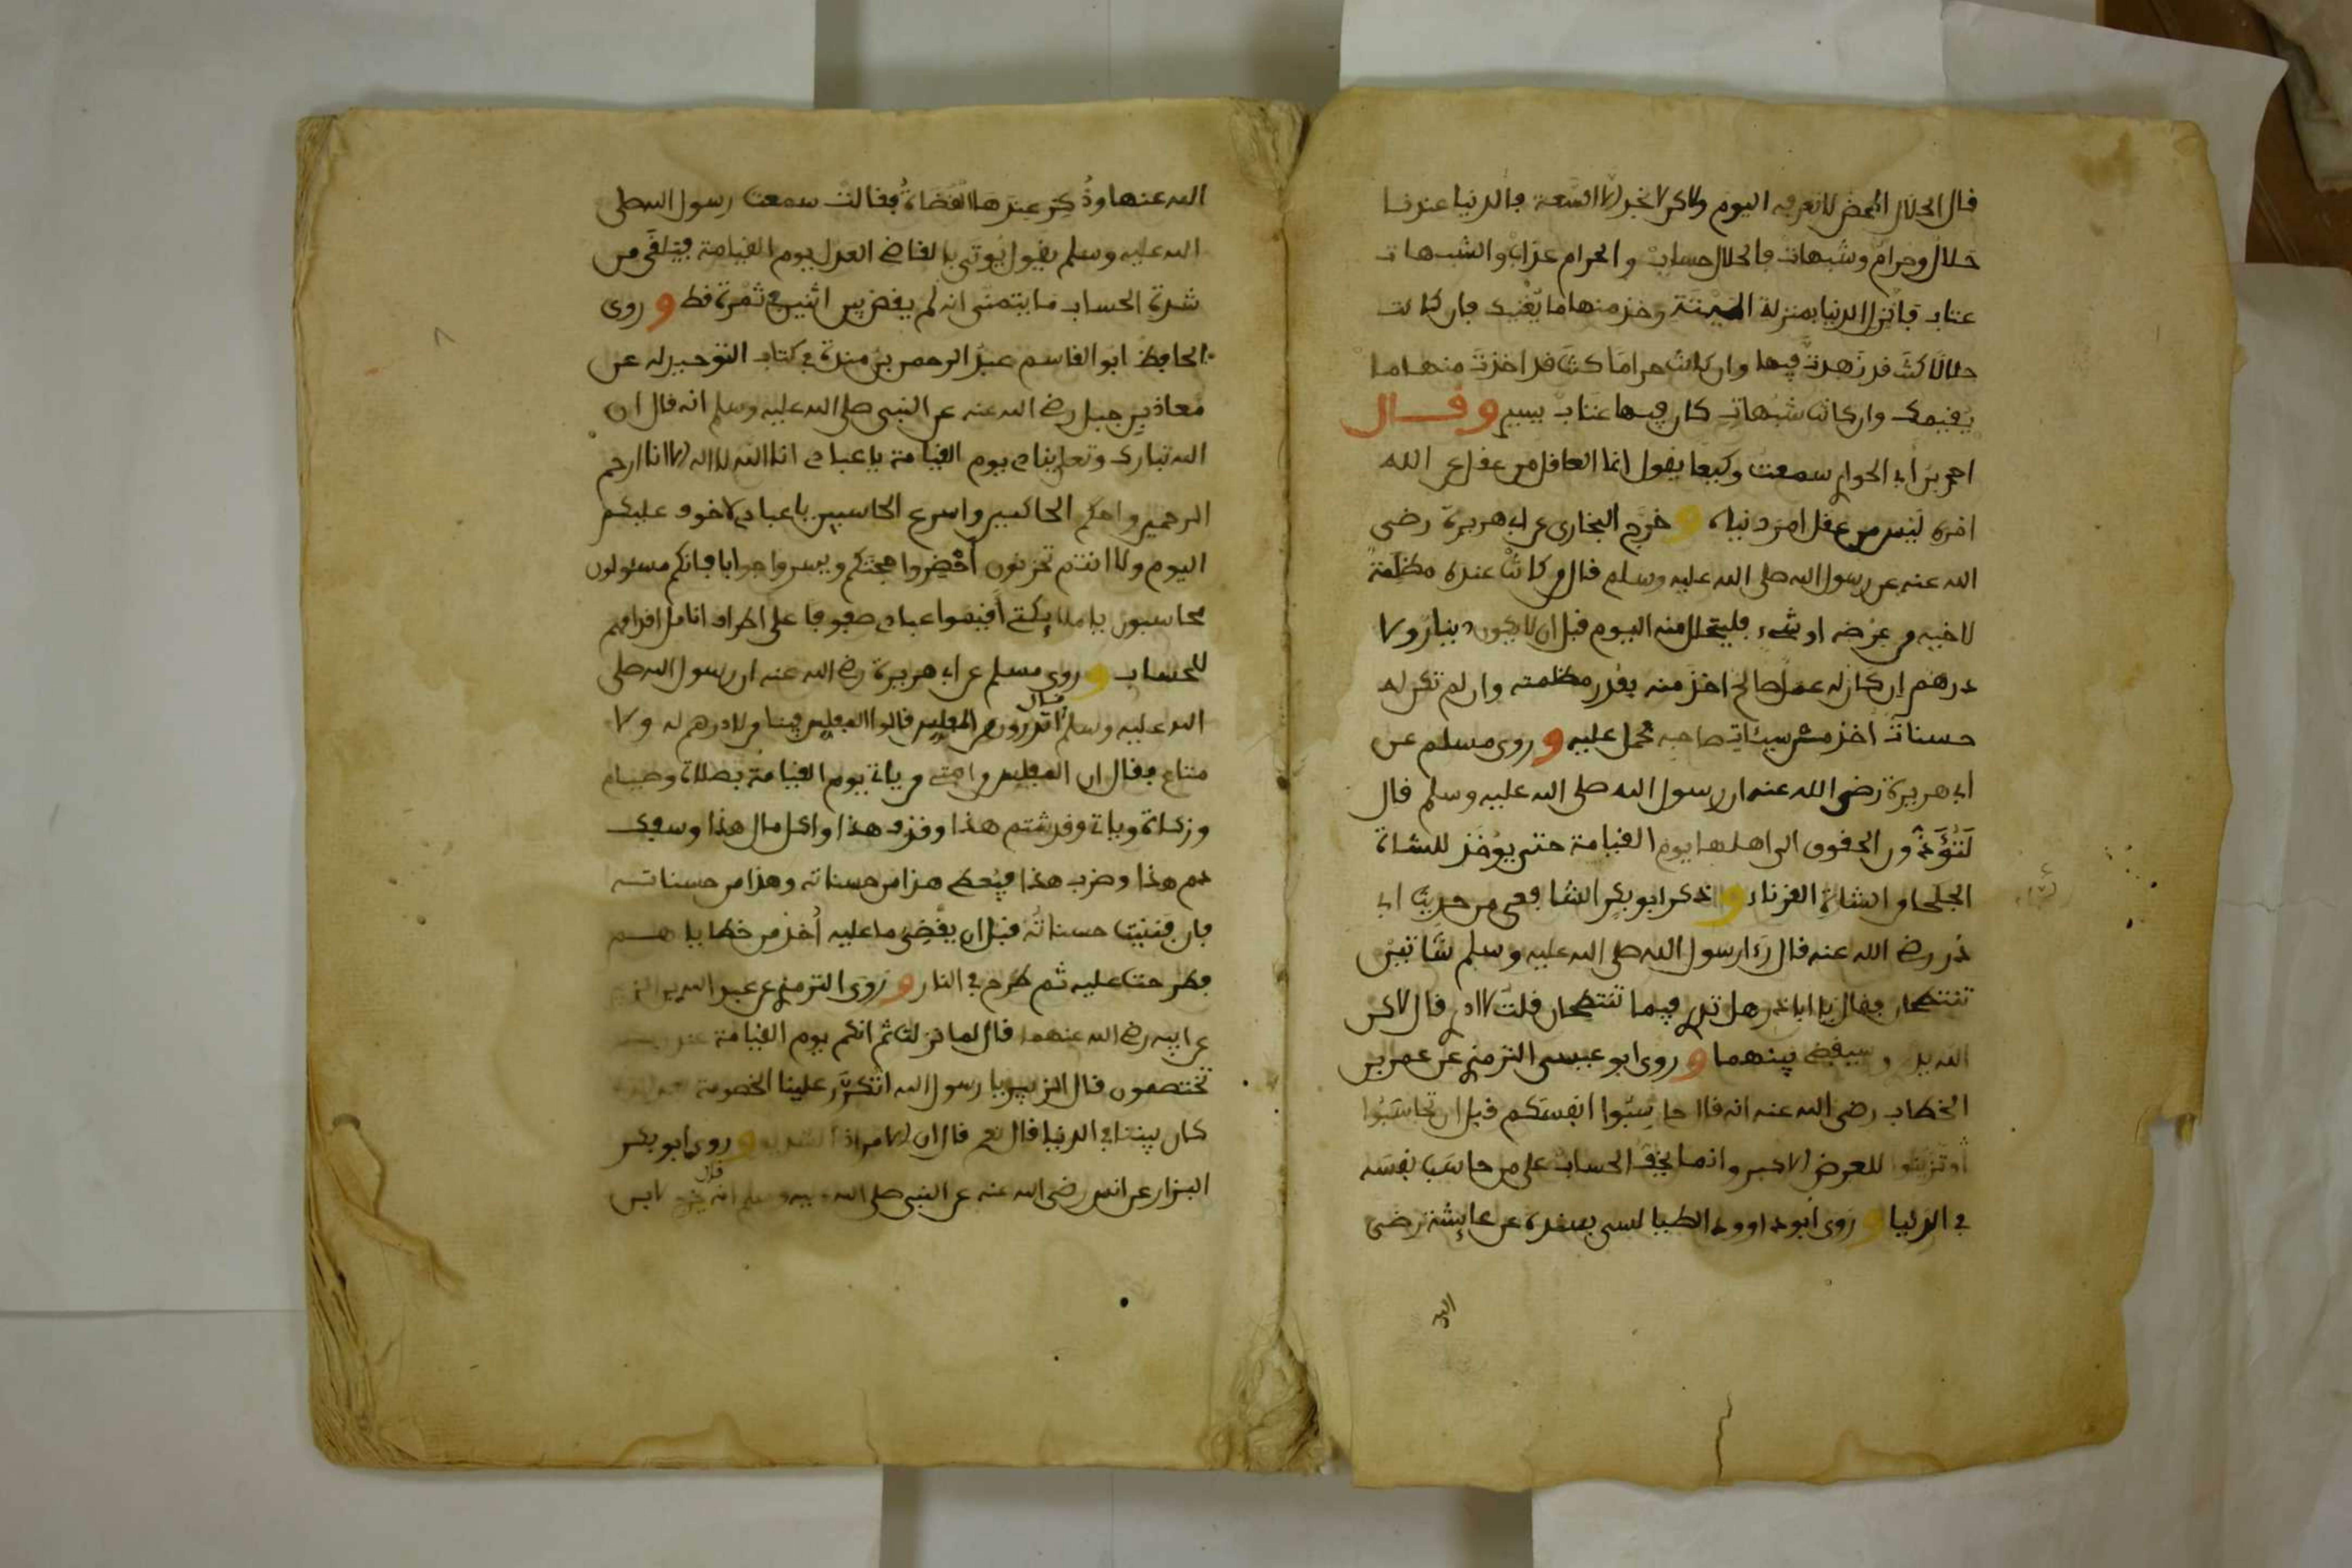 قال الحلال المحض لا نعرفه اليوم ولاكن لا نجد إلا السعة فالدنيا عندنا
حلال وحرام وشبهات فالحلال حساب والحرام عذاب والشبهات
عتاب فأنزل الدنيا بمنزلة الميتة وخذ منها ما يقيمك فإن كانت
حلالا كنت قد زهدت فيها وإن كانت حراما كنت قد أخذت منها ما
يقيمك وإن كانت شبهات كان فيها عتاب يسير وقال
احمد بن أبي الحواري سمعت وكيعا يقول إنما العاقل من عقل عن الله
أمره ليس من عقل أمر دنياه وخرج البخاري عن أبي هريرة رضي
الله عنه عن رسول الله صلى الله عليه وسلم قال من كانت عنده مظلمة
لأخيه من عرضه أو شيء فليتحلل منه اليوم قبل أن لا يكون دينار ولا
درهم إن كان له عمل صالح أخذ منه بقدر مظلمته وإن لم تكن له
حسنات أخذ من سيئات صاحبه فحمل عليه وروى مسلم عن
أبي هريرة رضي الله عنه أن رسول الله صلى الله عليه وسلم قال
لتؤدون الحقوق إلى أهلها يوم القيامة حتى يوخذ للشاة
الجلحا من الشاة القرناء وذكر أبو بكر الشافعي من حديث أبي
ذر رضي الله عنه قال رءا رسول الله صلى الله عليه وسلم شاتين
تنتطحان فقال يا أبا ذر هل تدري فيما تنتطحان قلت لا أدري قال لاكن
الله يدري وسيقضي بينهما وروى أبو عيسى الترمذي عن عمر بن
الخطاب رضي الله عنه أنه قال حاسبوا أنفسكم قبل أن تحاسبوا
وتزينوا للعرض الأكبر وإنما يخف الحساب على من حاسب نفسه
في الدنيا وروى أبو داوود الطيالسي بسنده عن عايشة رضي
الله
الله عنها وذكر عندها القضاة فقالت سمعت رسول الله صلى
الله عليه وسلم يقول يوتى بالقاضي العدل يوم القيامة فيلقى من
شدة الحساب ما يتمنى أنه لم يقض بين اثنين في ثمرة قط وروى
الحافظ أبو القاسم عبد الرحمن بن مندة في كتاب التوحيد له عن
معاذ بن جبل رضي الله عنه عن النبي صلى الله عليه وسلم أنه قال إن
الله تبارك وتعلى ينادي يوم القيامة يا عبادي أنا الله لا إله إلا أنا أرحم
الرحمين وأحكم الحاكمين وأسرع الحاسبين يا عبادي لا خوف عليكم
اليوم ولا أنتم تحزنون أحضروا حجتكم ويسروا جوابا فإنكم مسئولون
محاسبون يا ملايكتي أقيموا عبادي صفوفا على أطراف أنامل أقدامهم
للحساب وروى مسلم عن أبي هريرة رضي الله عنه أن رسول الله صلى
الله عليه وسلم قال أتدرون من المفلس قالوا المفلس فينا من لا درهم له ولا
متاع فقال إن المفلس من أمتي من ياتي يوم القيامة بصلاة وصيام
وزكاة وياتي وقد شتم هذا وقذف هذا وأكل مال هذا وسفك
دم هذا وضرب هذا فيعطى هذا من حسناته وهذا من حسناته
فإن فنيت حسناته قبل أن يقضي ما عليه أخذ من خطاياهم
فطرحت عليه ثم طرح في النار وروى الترمذي عن عبد الله بن الزبير
عن أبيه رضي الله عنهما قال لما نزلت ثم إنكم يوم القيامة عند ربكم
تختصمون قال الزبير يا رسول الله أتكرر علينا الخصومة
كان بيننا في الدنيا قال نعم قال إن الأمر إذا لشديد وروى أبو بكر
البزار عن أنس رضي الله عنه عن النبي صلى الله عليه وسلم أنه قال يخرج لابن